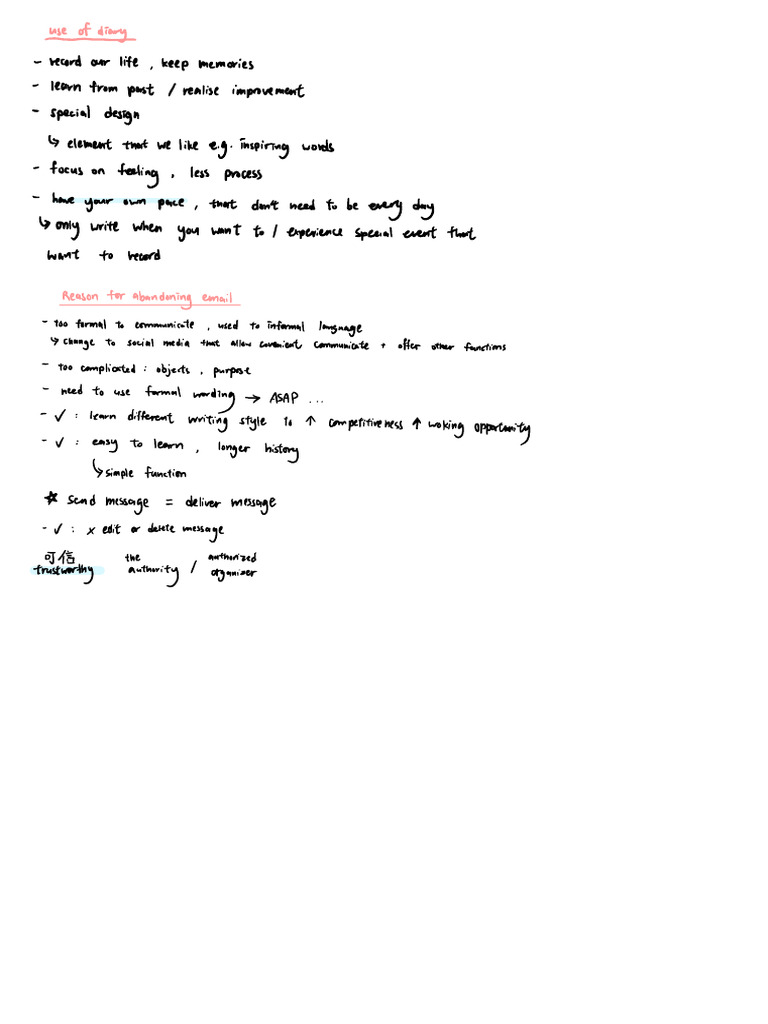 use of diary
- record our life , keep memories
- learn from past / realise improvement
- special design
↳ element that we like e.g. inspiring words
- focus on feeling , less process
- have your own pace , that don't need to be every day
↳ only write when you want to / experience special event that
want to record
Reason for abandoning email
- too formal to communicate , used to informal language
↳ change to social media that allow convenient communicate + offer other functions
- too complicated : objects , purpose
- need to use formal wording → ASAP ...
- ✓ : learn different writing style to ↑ competitiveness ↑ woking opportunity
- ✓ : easy to learn , longer history
↳ simple function
☆ send message = deliver message
- ✓ : x edit or delete message
可信 the authorized
trustworthy authority / organizer